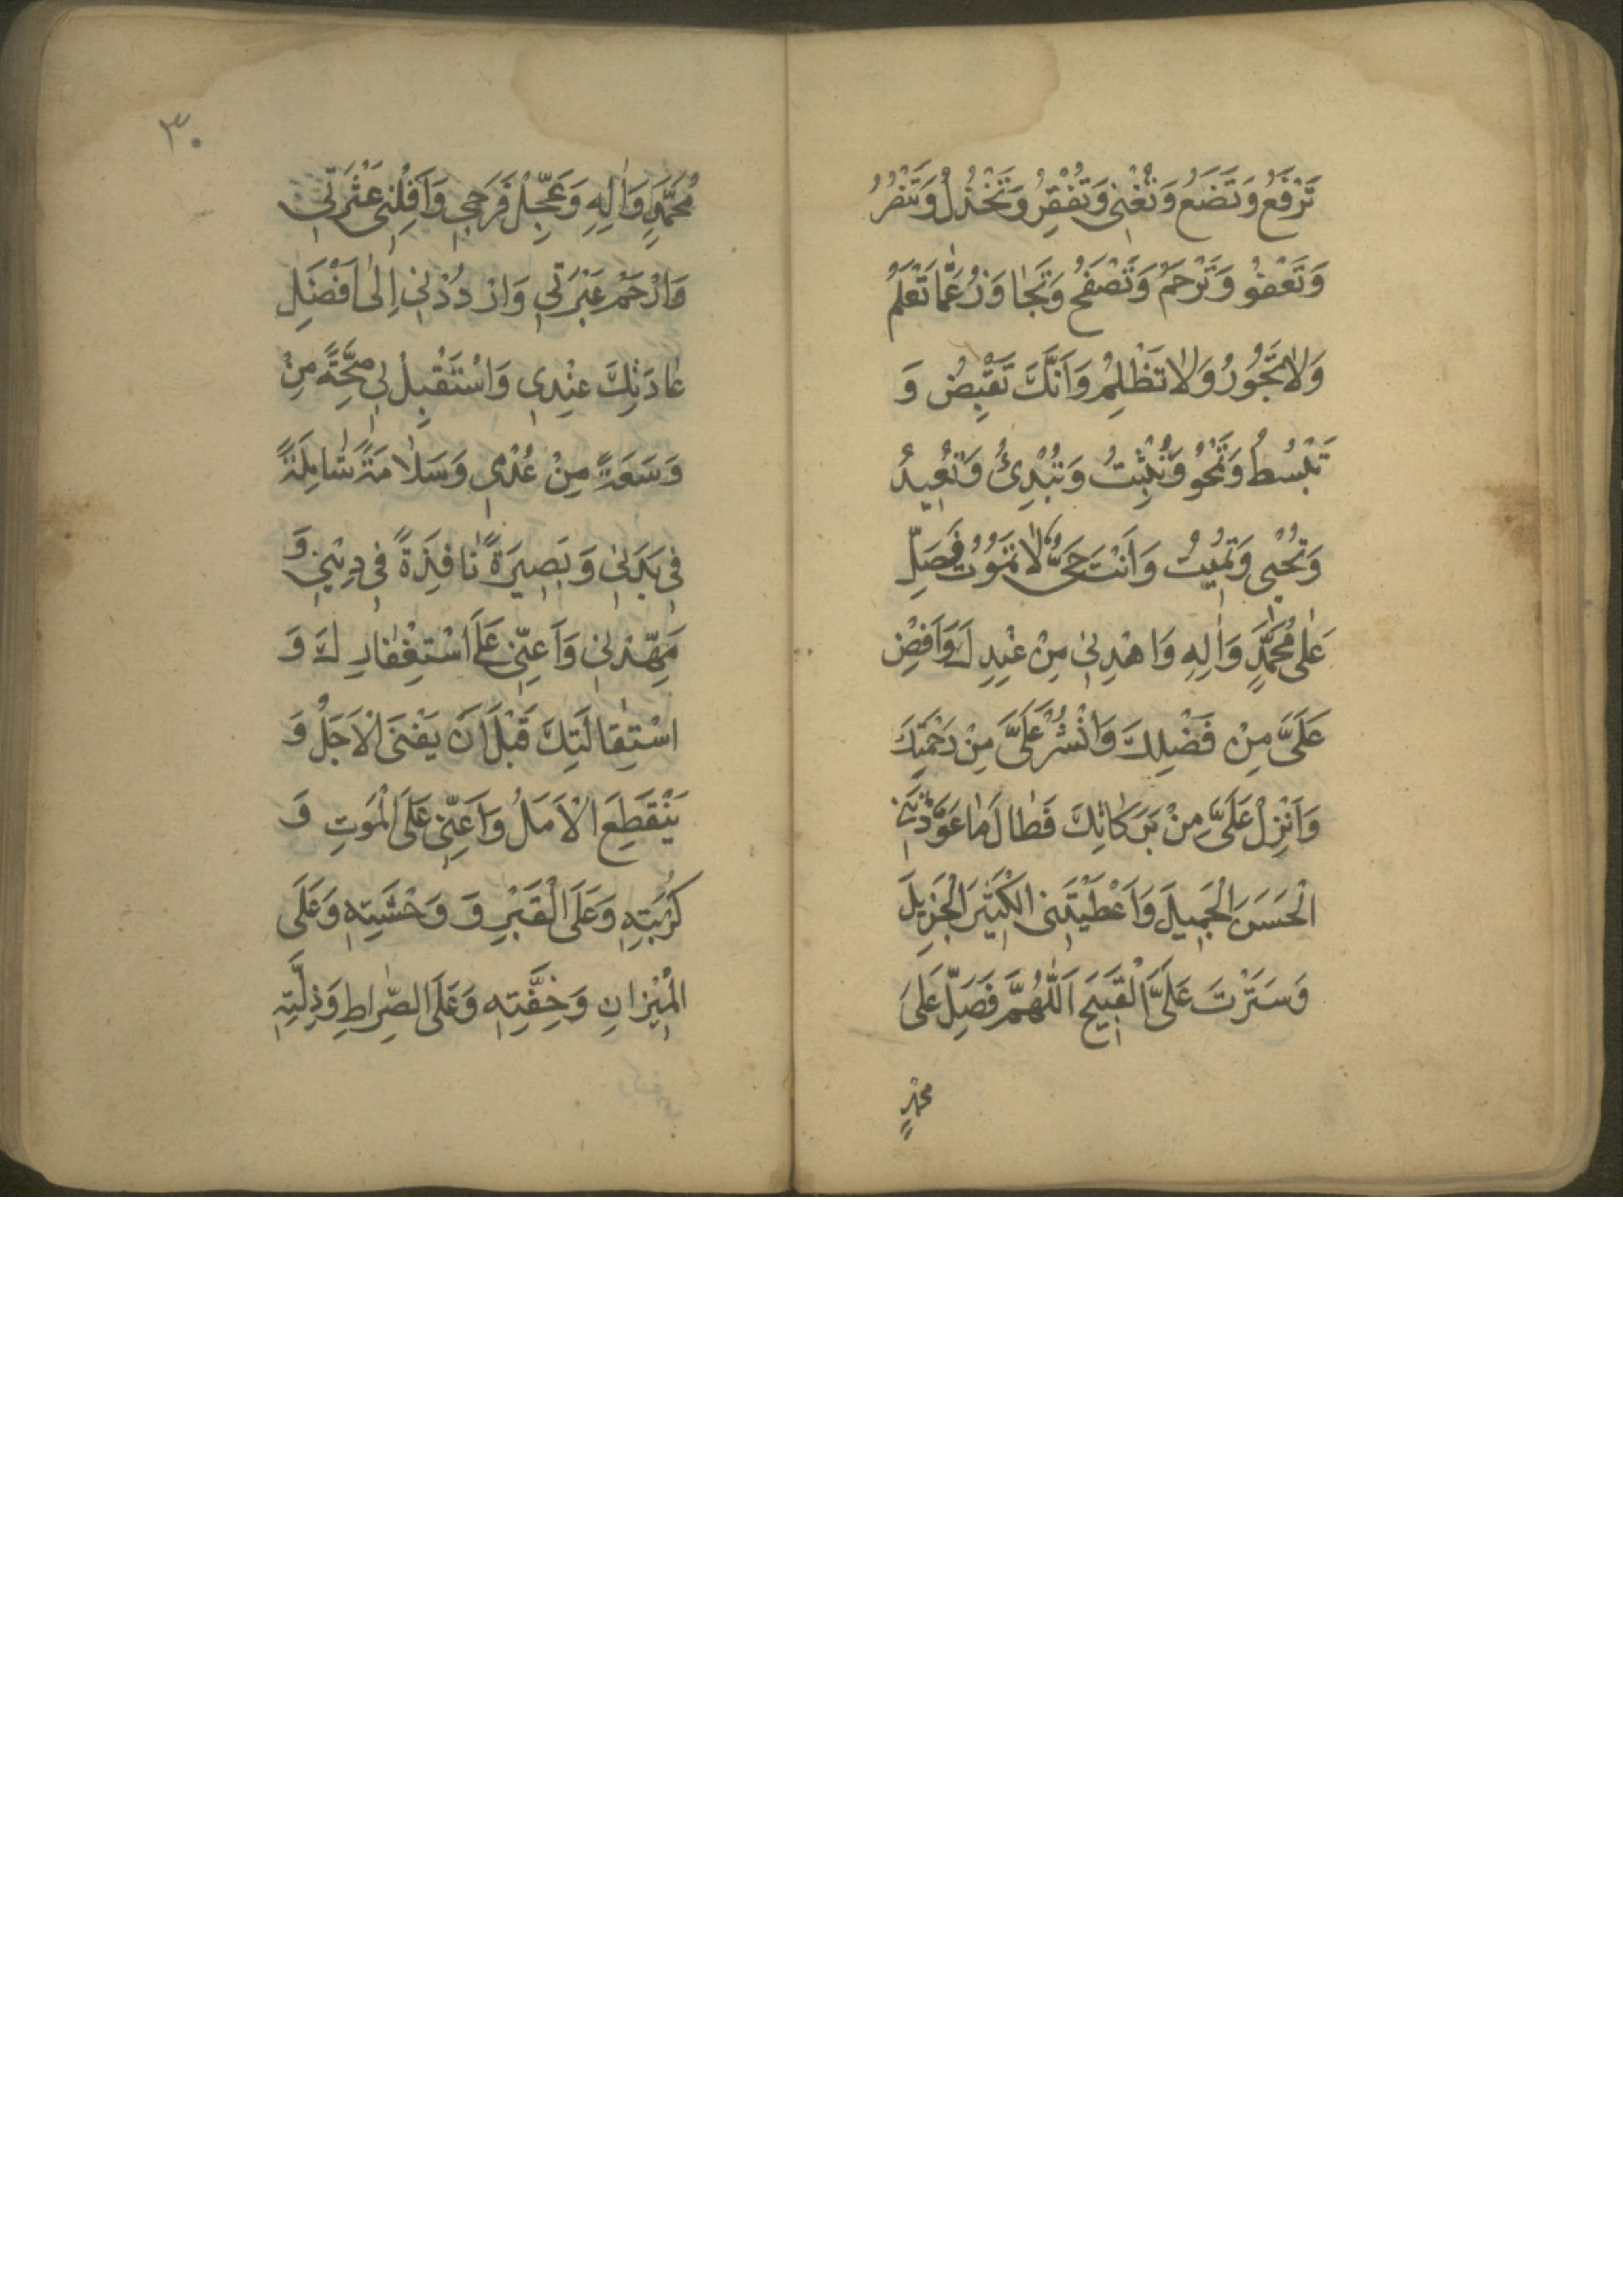 تَرْفَعُ وَتَضَعُ وَتُغْنِي وَتُفْقِرُ وَتَخْذُلُ وَتَنْصُرُ
وَتَعْفُو وَتَرْحَمُ وَتَصْفَحُ وَتَجَاوَزُ عَمَّا تَعْلَمُ
وَلَا تَجُورُ وَلَا تَظْلِمُ وَاَنَّكَ تَقْبِضُ وَ
تَبْسُطُ وَتَمْحُو وَتُثْبِتُ وَتُبْدِئُ وَتُعِيدُ
وَتُحْيِي وَتُمِيتُ وَاَنْتَ حَيٌّ لَا تَمُوتُ فَصَلِّ
عَلٰى مُحَمَّدٍ وَاٰلِهِ وَاهْدِنِي مِنْ عِنْدِكَ وَاَفِضْ
عَلَيَّ مِنْ فَضْلِكَ وَانْشُرْ عَلَيَّ مِنْ رَحْمَتِكَ
وَاَنْزِلْ عَلَيَّ مِنْ بَرَكَاتِكَ فَطَالَ مَا عَوَّدْتَنِي
الْحَسَنَ الْجَمِيلَ وَاَعْطَيْتَنِي الْكَثِيرَ الْجَزِيلَ
وَسَتَرْتَ عَلَيَّ الْقَبِيحَ اَللّٰهُمَّ فَصَلِّ عَلٰى
محمدٍ
٣٠
مُحَمَّدٍ وَاٰلِهِ وَعَجِّلْ فَرَجِي وَاَقِلْنِي عَثْرَتِي
وَارْحَمْ عَبْرَتِي وَارْدُدْنِي اِلٰى اَفْضَلِ
عَادَتِكَ عِنْدِي وَاسْتَقْبِلْ لِي صِحَّةً مِنْ
وَسَعَةً مِنْ عُدْمِي وَسَلَامَةً شَامِلَةً
فِي بَدَنِي وَبَصِيرَةً نَافِذَةً فِي دِينِي وَ
مَهِّدْنِي وَاَعِنِّي عَلَى اسْتِغْفَارِكَ وَ
اسْتِقَالَتِكَ قَبْلَ اَنْ يَفْنَى الْاَجَلُ وَ
يَنْقَطِعَ الْاَمَلُ وَاَعِنِّي عَلَى الْمَوتِ وَ
كُرْبَتِهِ وَعَلَى الْقَبْرِ وَ وَحْشَتِهِ وَعَلَى
الْمِيْزَانِ وَخِفَّتِهِ وَعَلَى الصِّرَاطِ وَذِلَّتِهِ